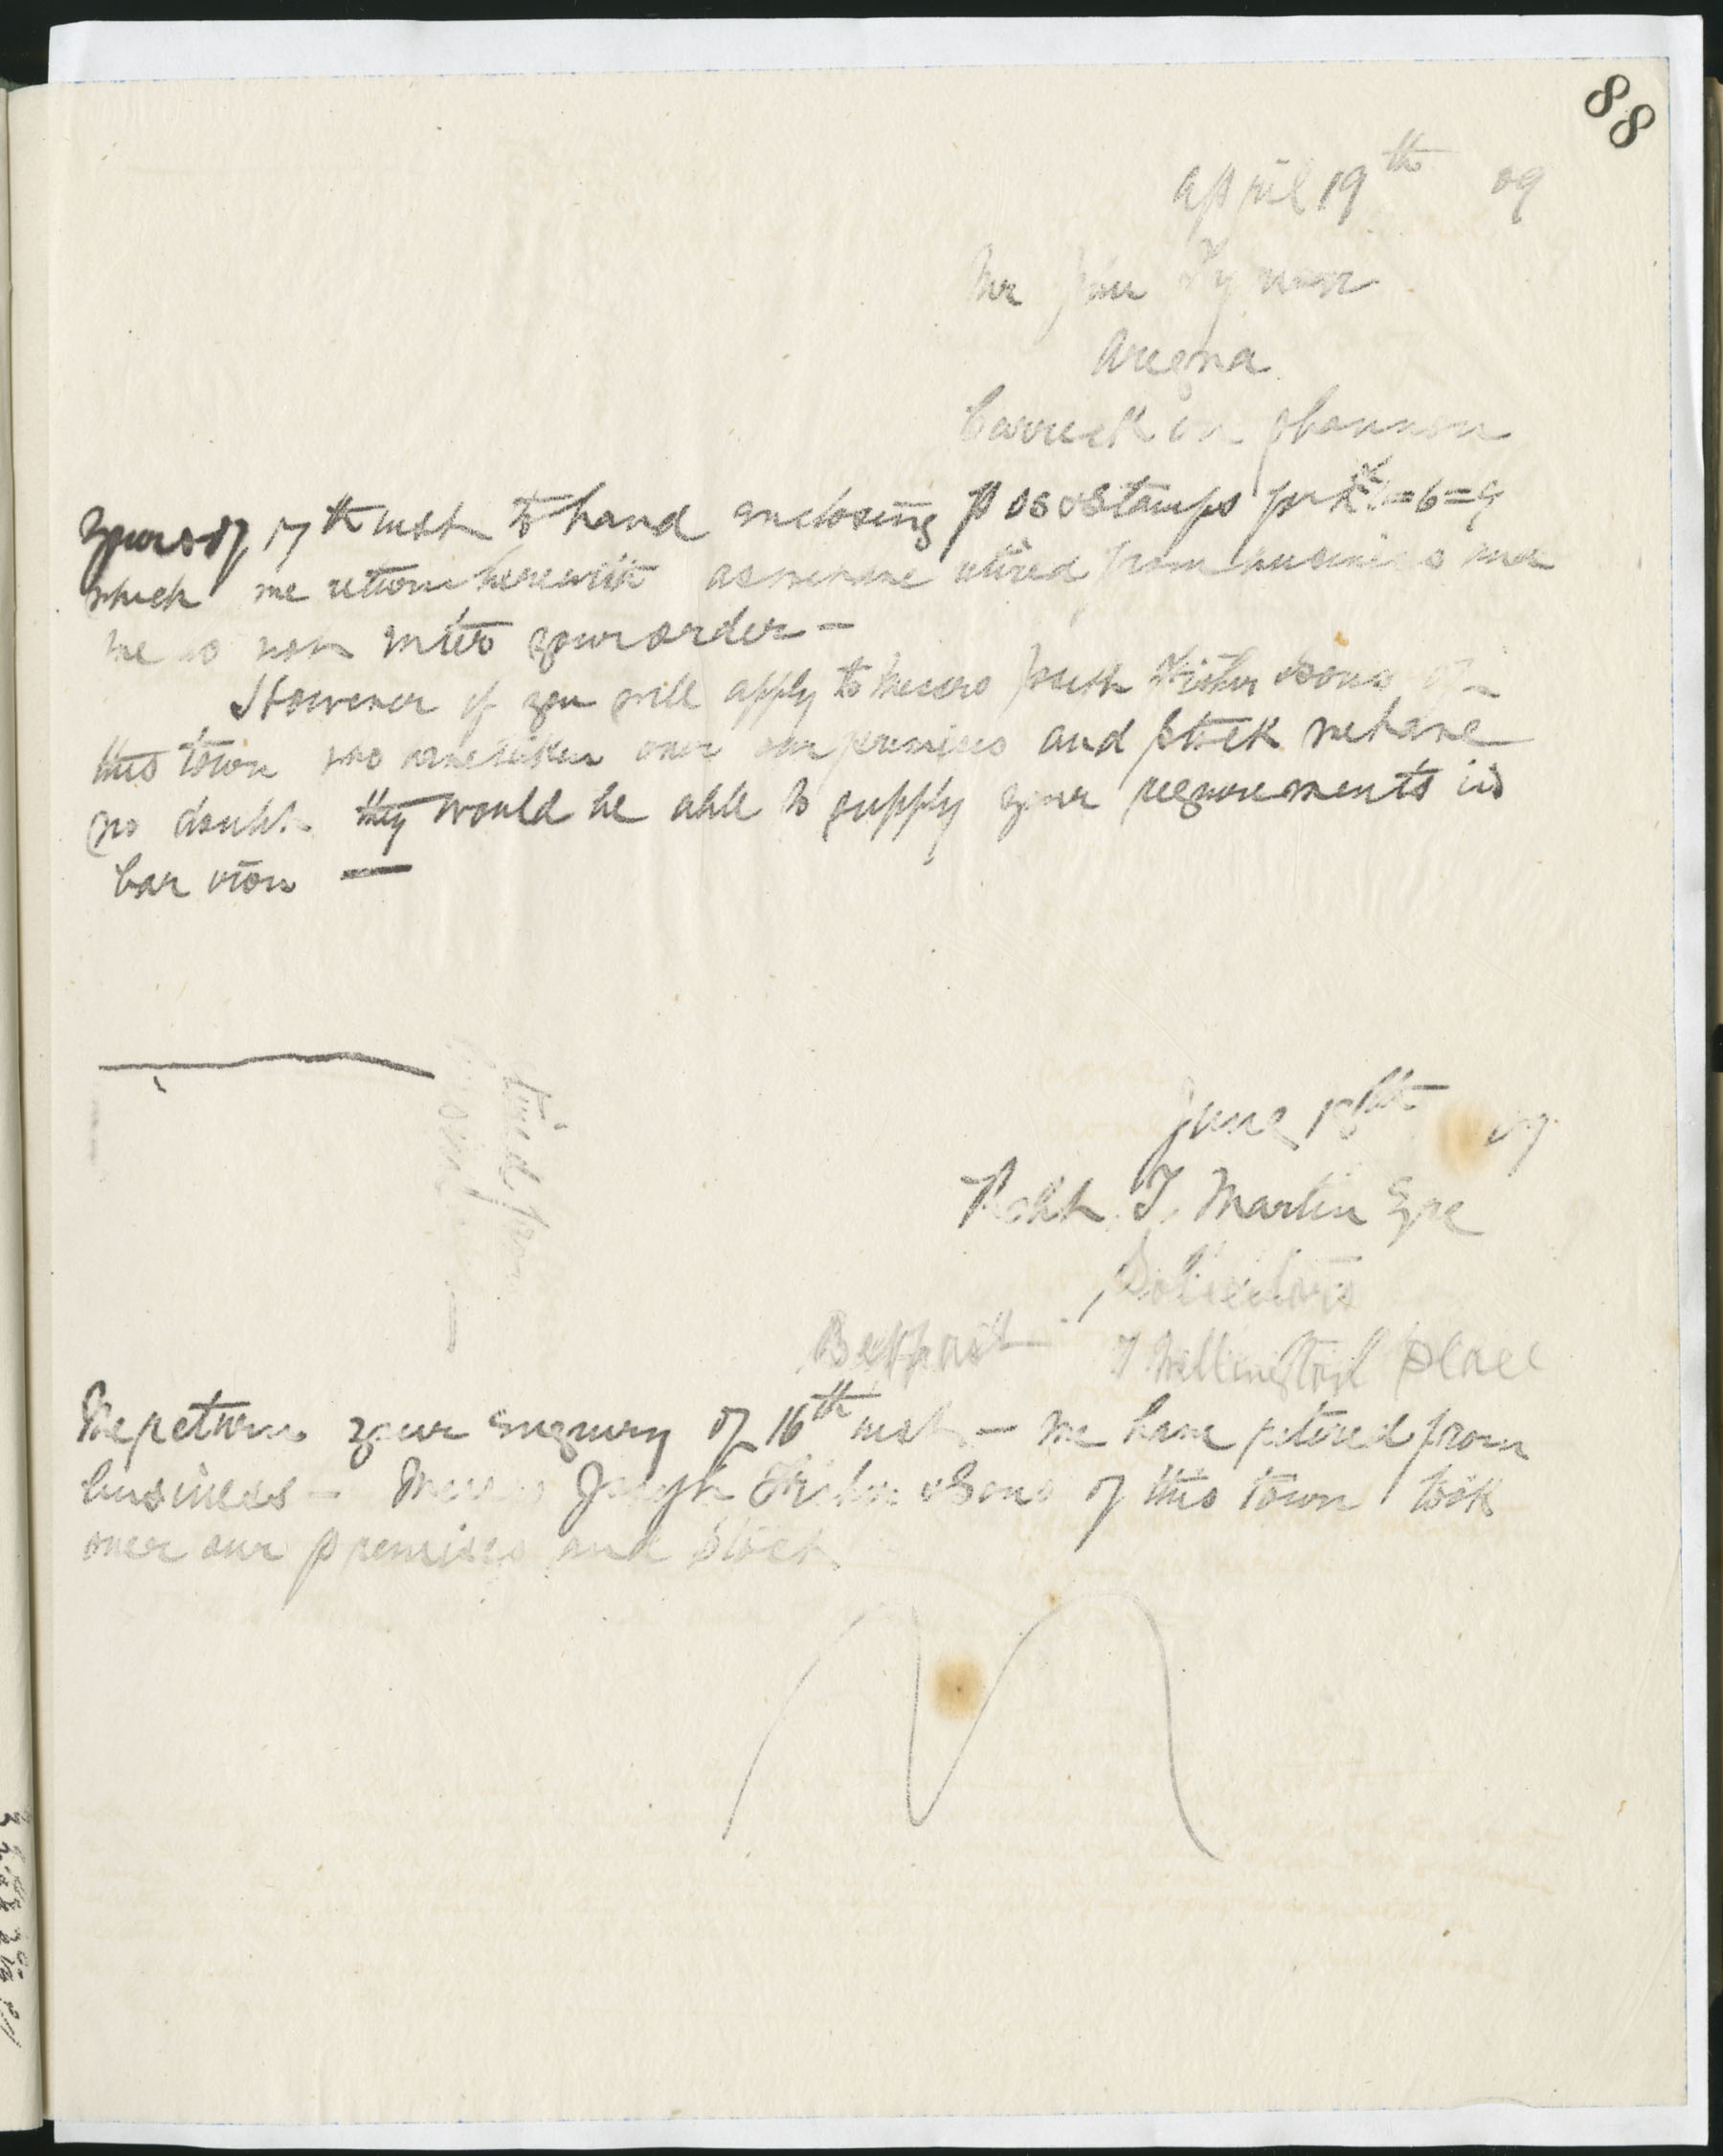 88
April 19th 09
Mr Tynan
Arigna
Carrick on Shannon
Yours of 17th inst to hand enclosing P Os & Stamps for =6=9
which we return herewith as we have retired from business and
we do not enter your order —
However if you will apply to Messrs Joseph Fisher & Sons of
this town who have taken over our premises and stock we have
no doubt they would be able to supply your requirements in
bar iron —
June 18th 09
Robt T. Martin Esqe
Solicitors
Belfast 7 Wellington Place
We return your enquiry of 16th inst — We have retired from
business — Messrs Joseph Fisher & Sons of this town took
over our premises and stock